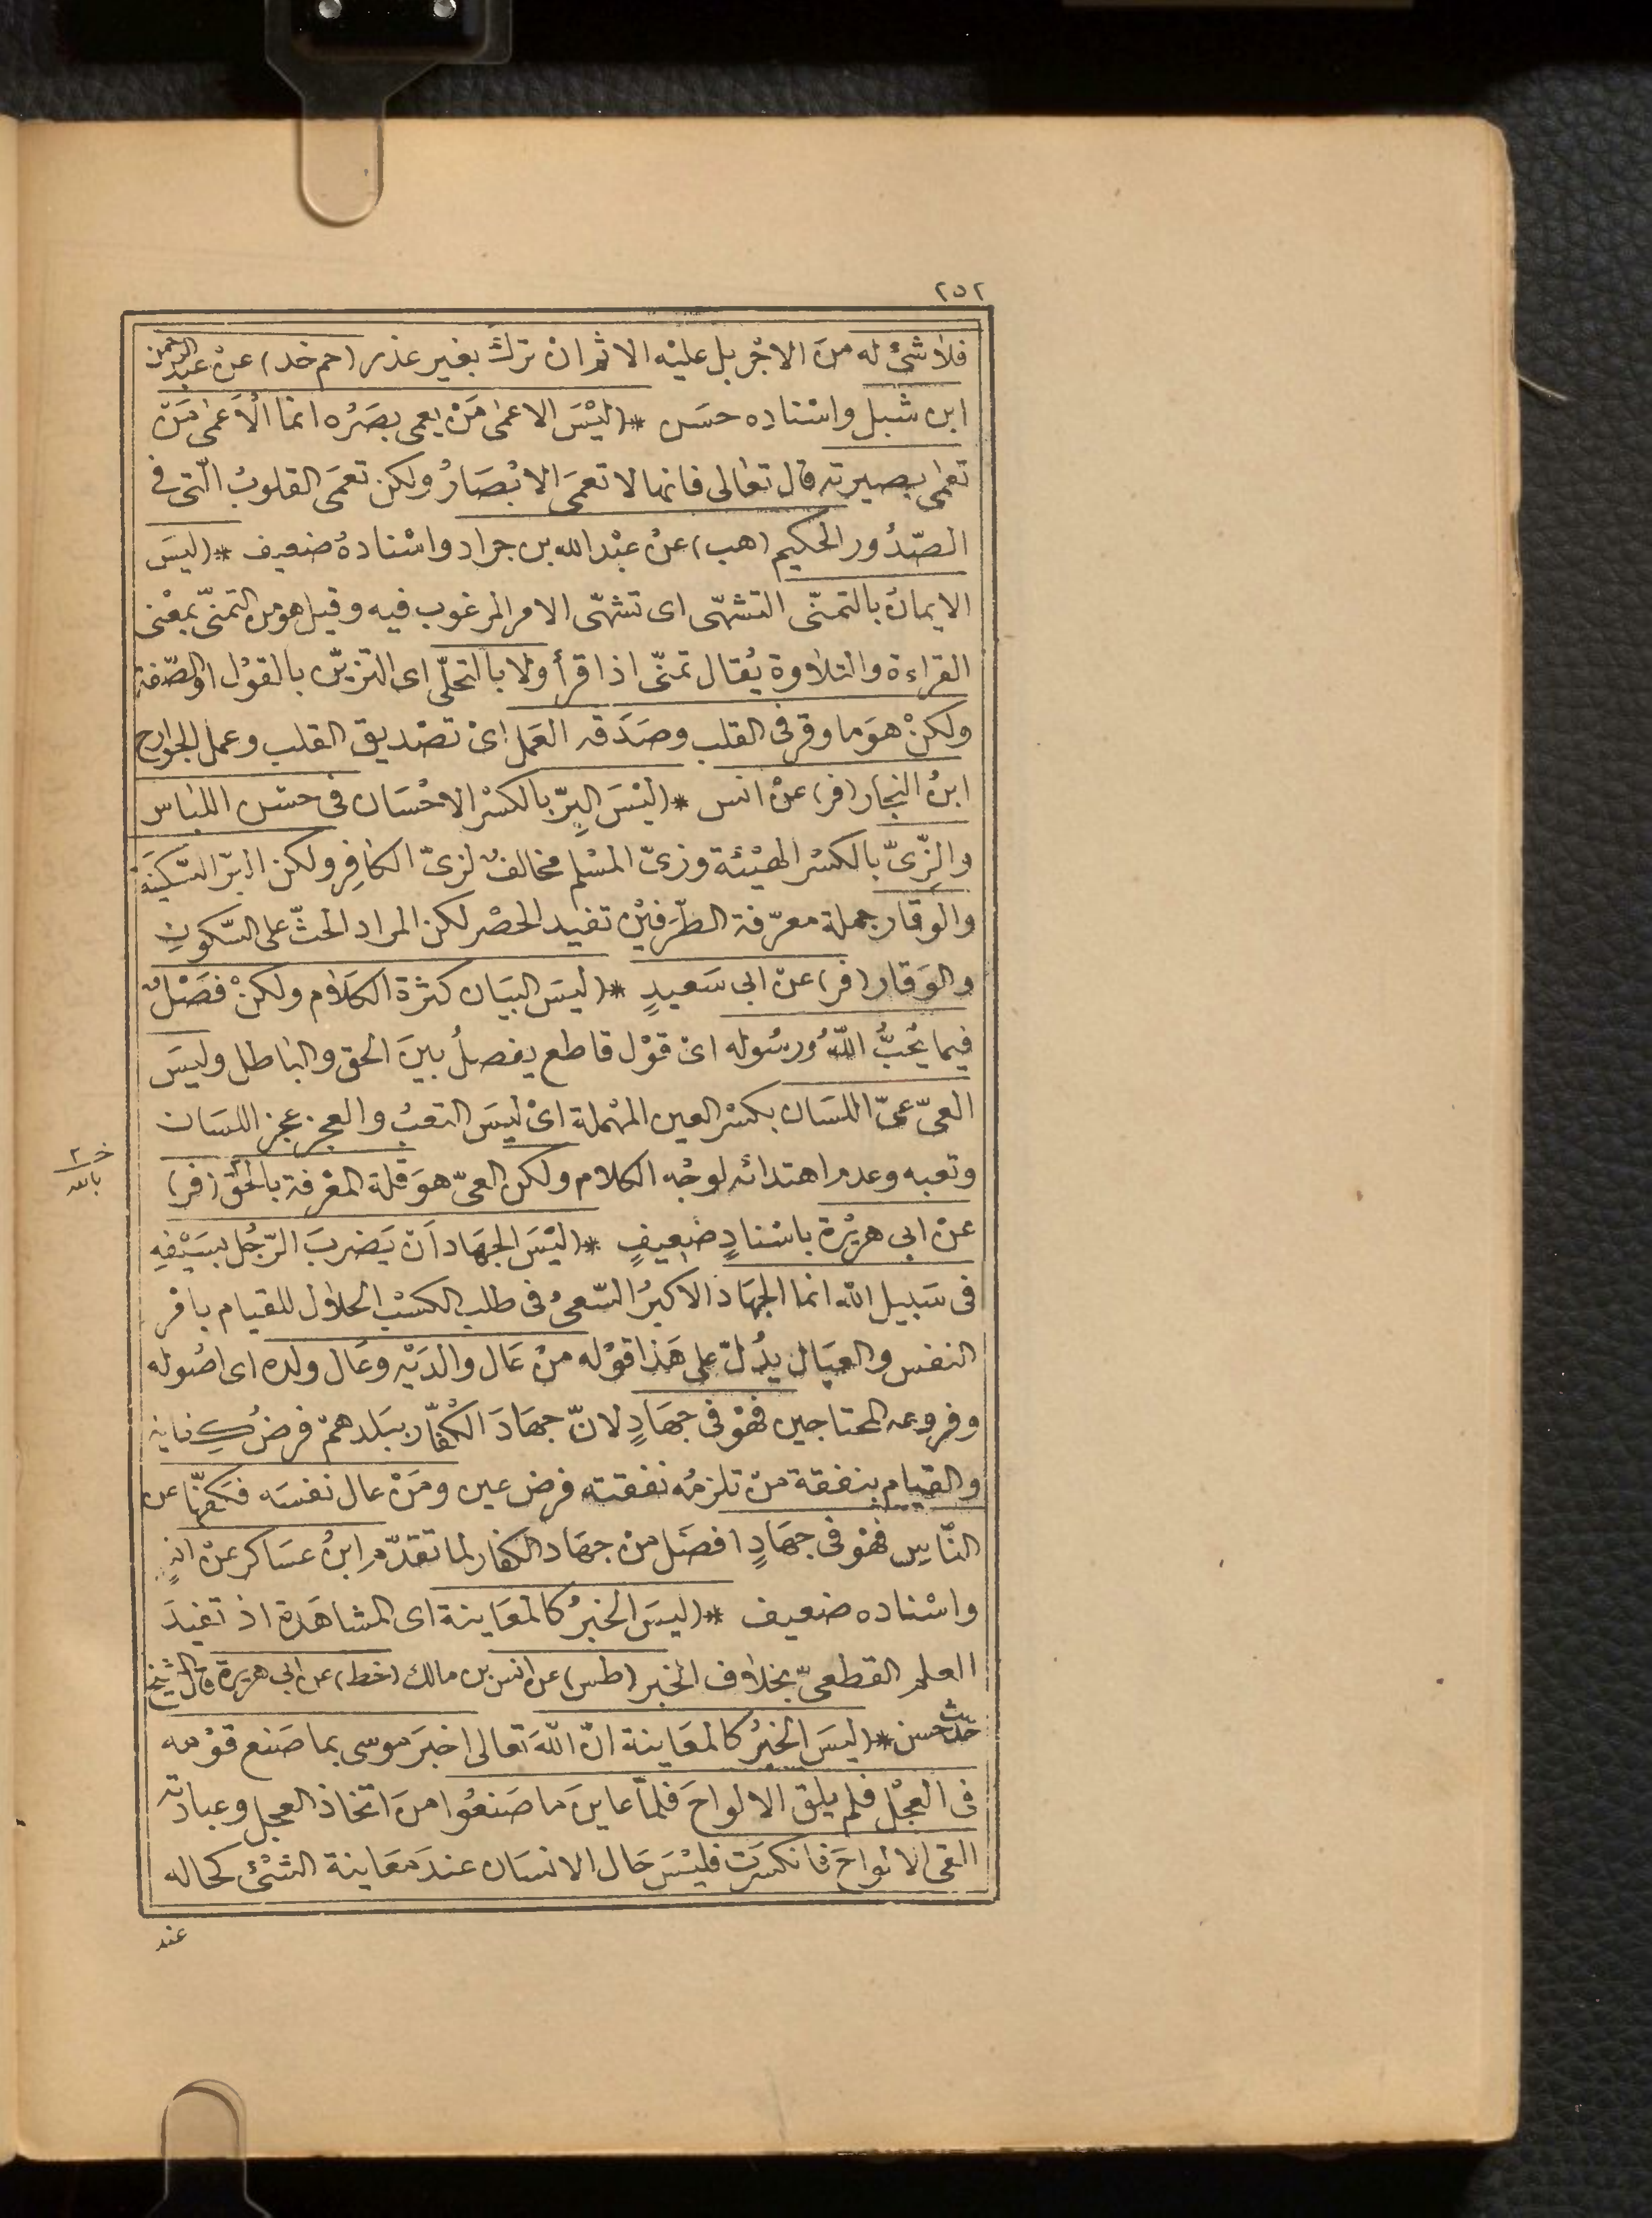 ٢٥٢
فلا شئ له منَ الاجْر بل عليْه الاثم ان ترك بغير عذر (حم خد) عنْ عبد الرحمن
ابن شبل واسْناده حسَن * (ليْسَ الاعمٰى مَنْ يعمى بصَرُه انما الْاَعمٰى مَنْ
تعمٰى بصيرته قال تعالى فانها لا تعمَى الابْصَارُ ولكن تعمَى القلوبُ الّتى فى
الصّدُور الحكيم (هب) عنْ عبْد الله بن جراد واسْنادهُ ضعيف * (ليسَ
الايمانُ بالتمنّى التشهّى اى تشهّى الامر المرغوب فيه وقيل هو من التمنّى بمعْنى
القراءة والتلاوة يُقال تمنّى اذا قرأ ولا بالتحلّى اى التزيّن بالقوْل او الصّفة
ولكنْ هوَ ما وقر فى القلب وصَدَقه العَمل اىْ تصْديق القلب وعمل الجوارح
ابنُ النجار (فر) عنْ انس * (ليْسَ البِرّ بالكسْر الاحْسَان فى حسْن اللباس
والزِّىّ بالكسْر الهيْئة وزىّ المسْلم مخالفٌ لزىّ الكافِر ولكن البرّ السّكينَة
والوَقار جملة معرّفة الطّرَفيْن تفيد الحصْر لكن المراد الحثّ على السّكونِ
والوَقار (فر) عنْ ابى سَعيدٍ * (ليسَ البيَان كثرة الكلاَم ولكنْ فصْلٌ
فيما يُحبُّ اللّهُ ورسُوله اىْ قوْل قاطع يفصلُ بينَ الحق والباطل وليسَ
العىّ عىّ اللسَان بكسْر العين المهْملة اىْ ليسَ التعبُ والعجز عجز اللسَان
وتعبه وعدم اهتدائه لوجْه الكلام ولكن العىّ هوَ قلة المعْرفة بالحَق (فر)
عنْ ابى هريْرة باسْنادٍ ضعيفٍ * (ليْسَ الجهَاد اَنْ يَضربَ الرّجُل بسَيْفِهِ
فى سَبيل الله انما الجهَاد الاكبرُ السّعىُ فى طلب الكسْب الحلال للقيام بامر
النفس والعيَال يدُلّ على هَذا قوْله منْ عَال والدَيْه وعَال ولده اى اصُوله
وفروعه المحتاجين فهْوَ فى جهَادٍ لانّ جهَادَ الكُفّار ببَلدهمْ فرضُ كفاية
والقيام بنفقة منْ تلزمُه نفقته فرض عين ومَنْ عال نفسَه فكفّها عن
النّاس فهْوَ فى جهَادٍ افضَل منْ جهَاد الكفار لما تقدّم ابنُ عسَاكر عنْ انسٍ
واسْناده ضعيف * (ليسَ الخبرُ كالمعَاينة اى المشاهَدة اذ تفيدَ
العلم القطعىّ بخلاف الخبر (طس) عن انس بن مالك (خط) عن ابى هريرة قال الشيخ
حديث حسن * (ليسَ الخبرُ كالمعَاينة انّ اللّهَ تعَالى اخبَرَ موسى بما صَنع قوْمه
فى العجْل فلم يلق الالواحَ فلمّا عاينَ ما صَنعُوا منَ اتخاذ العجل وعبادته
القى الالواحَ فانكسَرت فليْسَ حَال الانسَان عندَ معَاينة الشئ كحاله
عند